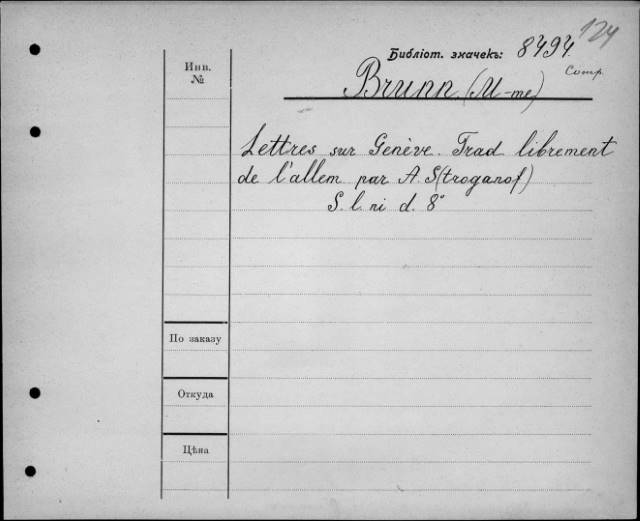 124
Библіот. значекъ: 8494.
Comp.
Инв.
№
Brunn. (M-me)
Lettres sur Genève. Trad librement
de l'allem par A. S(troganof)
S. l. ni d. 8°
По заказу
Откуда
Цѣна